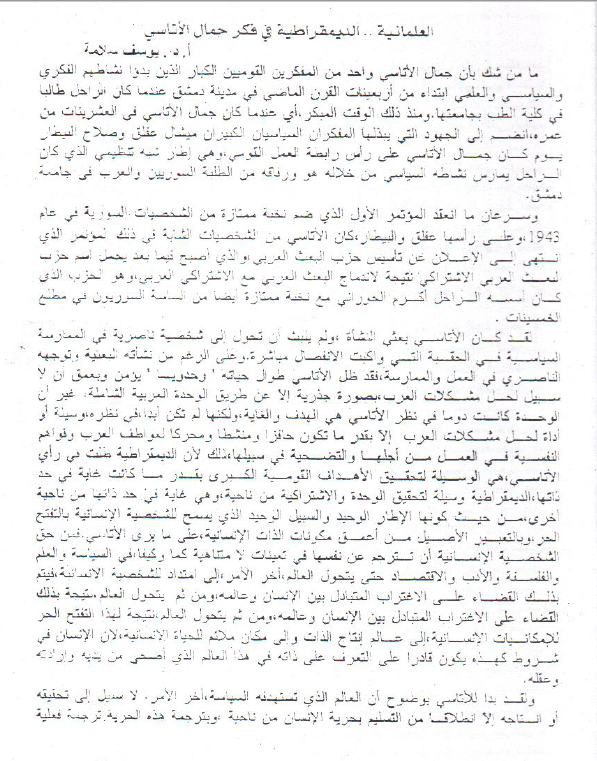 العلمانية .. الديمقراطية في فكر جمال الأتاسي
أ.د. يوسف سلامة
ما من شك بأن جمال الأتاسي واحد من المفكرين القوميين الكبار الذين بدؤا نشاطهم الفكري
والسياسي والعلمي ابتداء من أربعينات القرن الماضي في مدينة دمشق عندما كان الراحل طالبا
في كلية الطب بجامعتها.ومنذ ذلك الوقت المبكر،أي عندما كان جمال الأتاسي في العشرينات من
عمره،انضم إلى الجهود التي يبذلها المفكران السياسيان الكبيران ميشال عفلق وصلاح البيطار
يوم كان جمال الأتاسي على رأس رابطة العمل القومي،وهي إطار شبه تنظيمي الذي كان
الراحل يمارس نشاطه السياسي من خلاله هو ورفاقه من الطلبة السوريين والعرب في جامعة
دمشق.
وسرعان ما انعقد المؤتمر الأول الذي ضم نخبة ممتازة من الشخصيات السورية في عام
1943،وعلى رأسها عفلق والبيطار،كان الأتاسي من الشخصيات الشابة في ذلك المؤتمر الذي
انتهى إلى الإعلان عن تأسيس حزب البعث العربي،والذي أصبح فيما بعد يحمل اسم حزب
البعث العربي الاشتراكي نتيجة لاندماج البعث العربي مع الاشتراكي العربي،وهو الحزب الذي
كان أسسه الراحل أكرم الحوراني مع نخبة ممتازة أيضا من الساسة السوريون في مطلع
الخمسينات .
لقد كان الأتاسي بعثي النشأة ،ولم يلبث أن تحول إلى شخصية ناصرية في الممارسة
السياسية في الحقبة التي واكبت الانفصال مباشرة.وعلى الرغم من نشأته البعثية وتوجهه
الناصري في العمل والممارسة،فقد ظل الأتاسي طوال حياته ' وحدويا ' يؤمن وبعمق أن لا
سبيل لحل مشكلات العرب،بصورة جذرية إلا عن طريق الوحدة العربية الشاملة. غير أن
الوحدة كانت دوما في نظر الأتاسي هي الهدف والغاية،ولكنها لم تكن أبدا،في نظره،وسيلة أو
أداة لحل مشكلات العرب إلا بقدر ما تكون حافزا ومنشطا ومحركا لعواطف العرب وقواهم
النفسية في العمل من أجلها والتضحية في سبيلها،ذلك لأن الديمقراطية ظلت في رأي
الأتاسي،هي الوسيلة لتحقيق الأهداف القومية الكبرى بقدر ما كانت غاية في حد
ذاتها،الديمقراطية وسيلة لتحقيق الوحدة والاشتراكية من ناحية،وهي غاية في حد ذاتها من ناحية
أخرى،من حيث كونها الإطار الوحيد والسبيل الوحيد الذي يسمح للشخصية الإنسانية بالتفتح
الحر،وبالتعبير الأصيل من أعمق مكونات الذات الإنسانية،على ما يرى الأتاسي.فمن حق
الشخصية الإنسانية أن تترجم عن نفسها في تعينات لا متناهية كما وكيفا،في السياسة والعلم
والفلسفة والأدب والاقتصاد حتى يتحول العالم،آخر الأمر،إلى امتداد للشخصية الانسانية،فيتم
بذلك القضاء على الاغتراب المتبادل بين الإنسان وعالمه،ومن ثم يتحول العالم،نتيجة بذلك
القضاء على الاغتراب المتبادل بين الإنسان وعالمه،ومن ثم يتحول العالم،نتيجة لهذا التفتح الحر
للإمكانيات الإنسانية،إلى عالم إنتاج الذات وإلى مكان ملائم للحياة الانسانية،لان الإنسان في
شروط كهذه يكون قادرا على التعرف على ذاته في هذا العالم الذي أضحى من يديه وإرادته
وعقله.
ولقد بدا للأتاسي بوضوح أن العالم الذي تستهدفه السياسة،آخر الأمر. لا سبيل إلى تحقيقه
أو انتاجه إلا انطلاقا من التسليم بحرية الإنسان من ناحية ،وبترجمة هذه الحرية،ترجمة فعلية